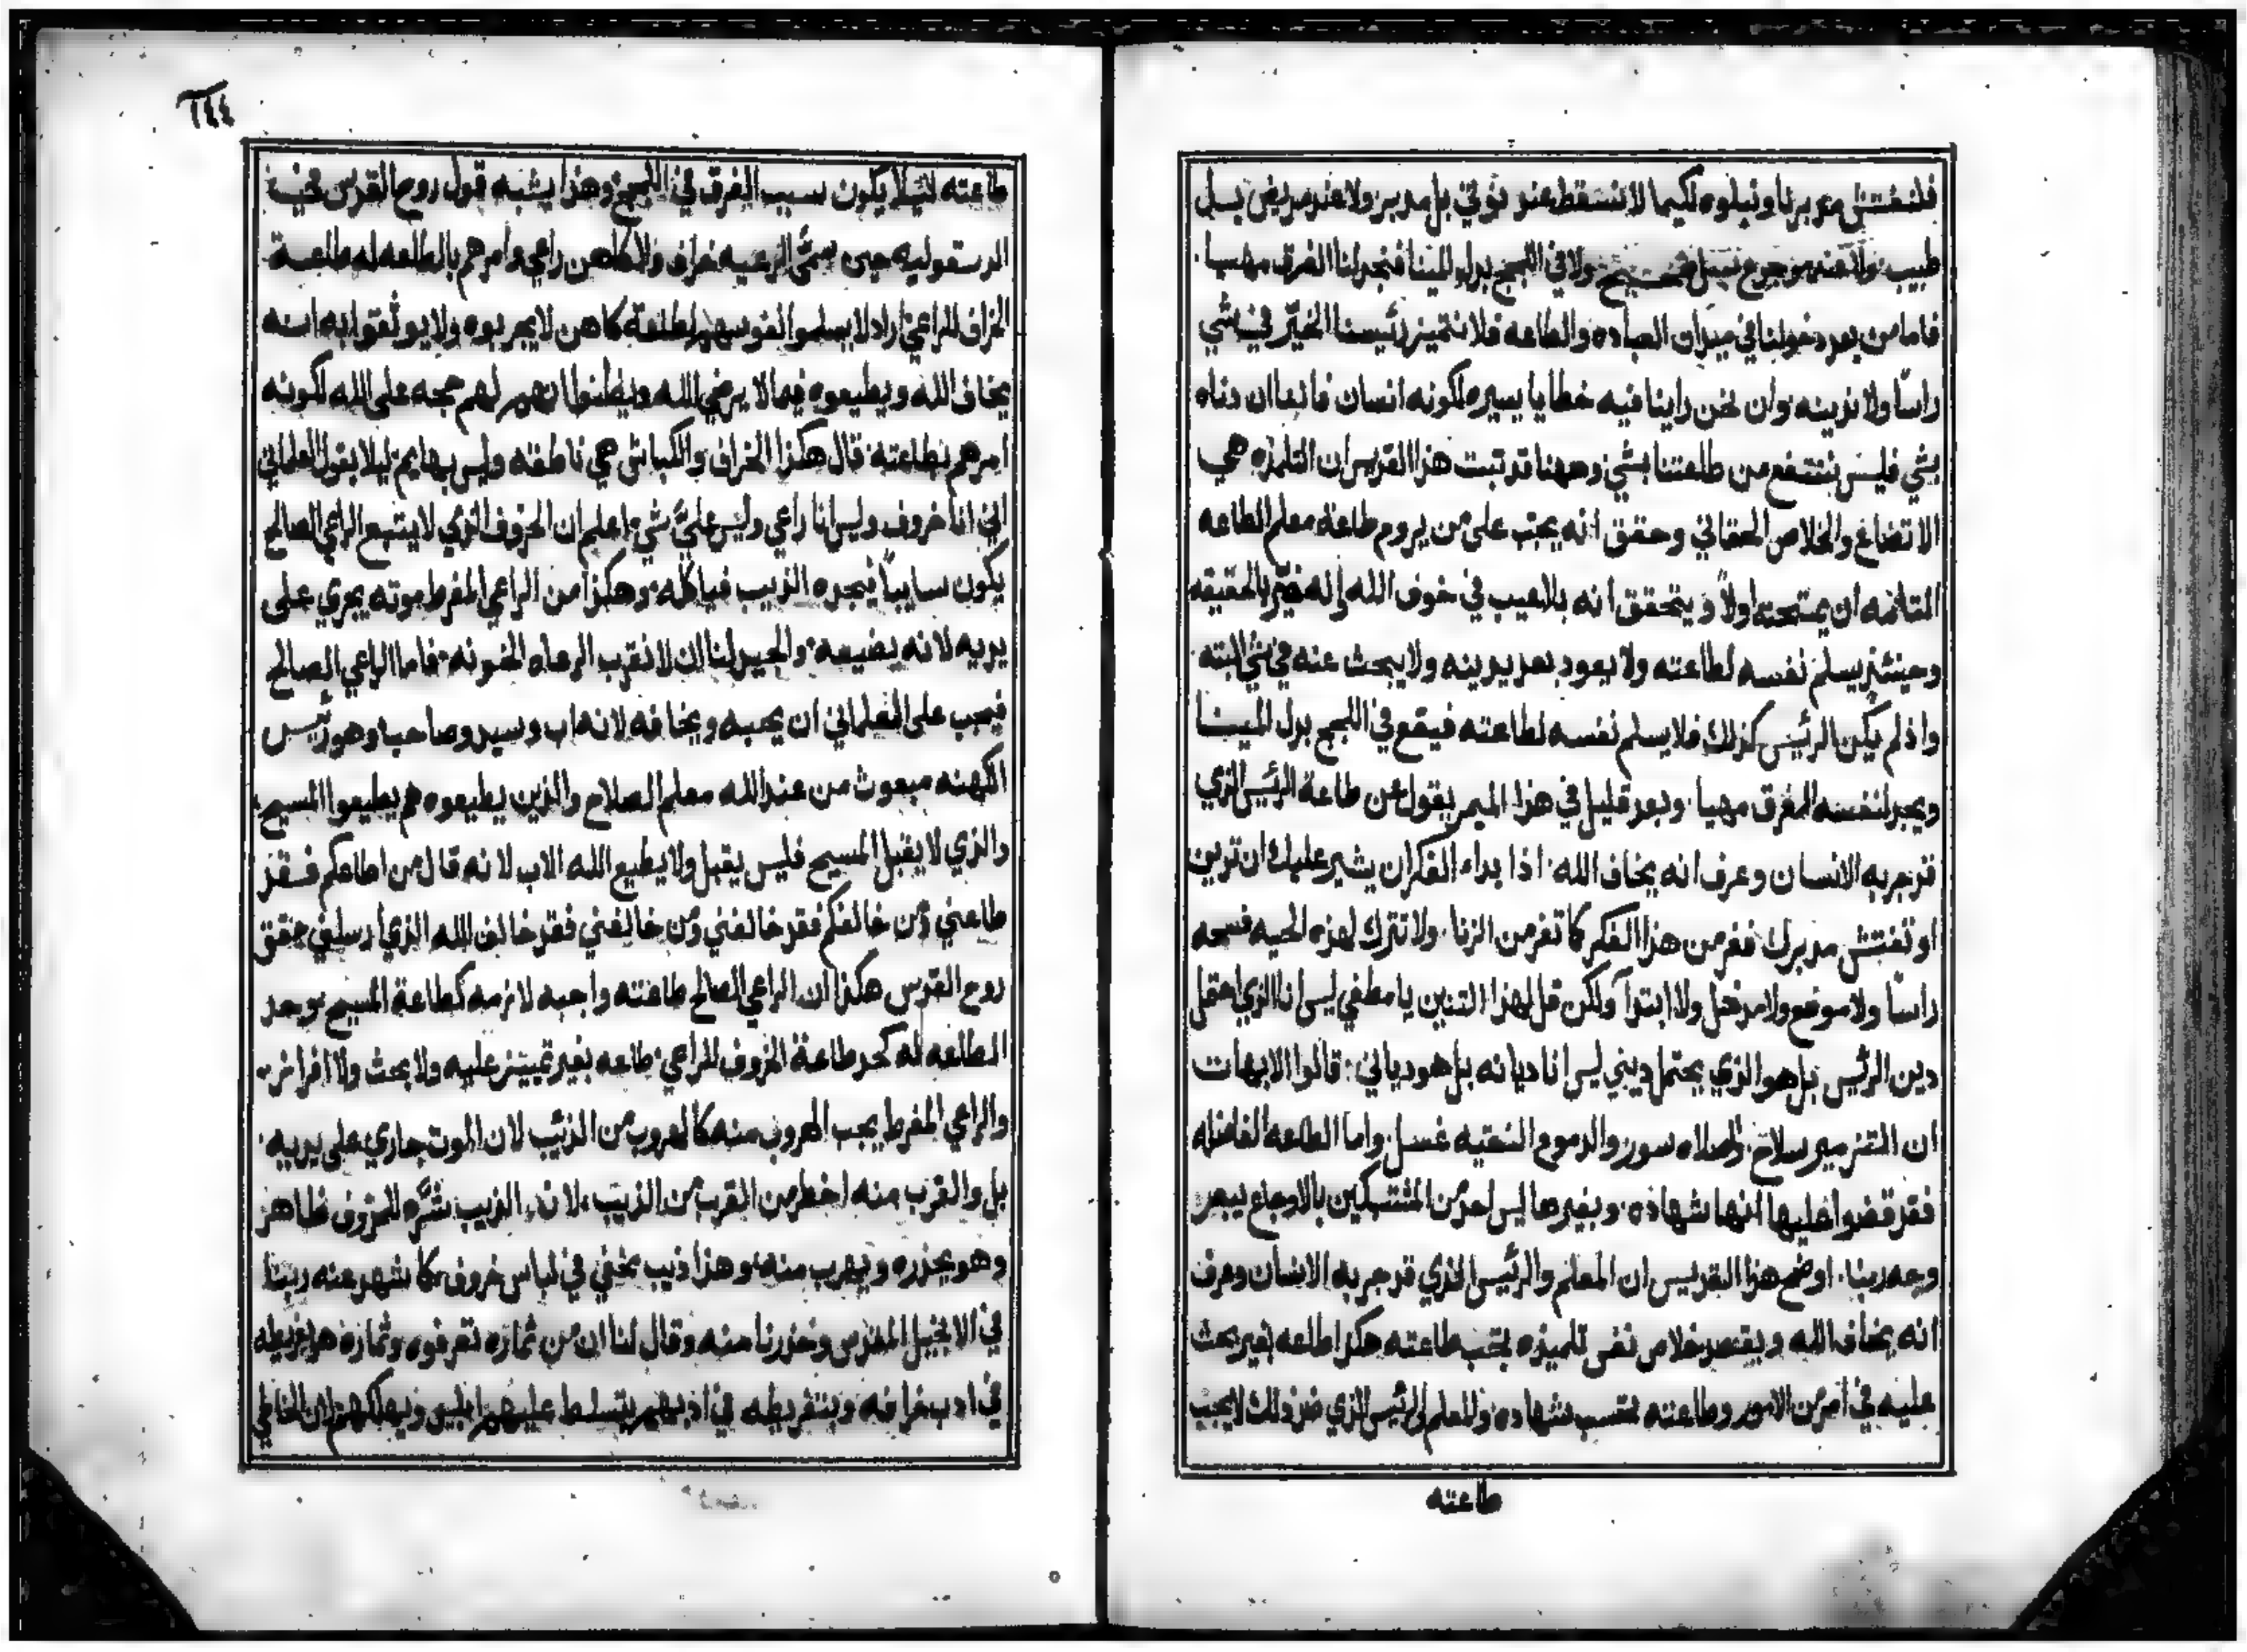 فلنفتش مدبرنا ونبلوه لكيما لا نسقط عند نوتي بل مدبر ولا عند مريض بدل
طبيب ولا عند موجوع ولا في اللجج بدل المينا فنجد لنا الغرق مهيا
فاما من بعد دخولنا في ميدان العباده والطاعه فلا نتميز رئيسنا الخيّر في شي
راسًا ولا ندينه وان نحن راينا فيه خطايا يسيره لكونه انسان فاننا ان دناه
بشي فليس ننتفع من طاعتنا بشي وههنا قد ثبت هذا القديس ان التلمذه هي
الاتضاع والخلاص الحقاني وحقق انه يجب على من يروم طاعة معلم الطاعه
المتلمذه ان يمتحنه اولاً ويتحقق انه بلا عيب في خوف الله وانه خيّر بالحقيقه
وحينئذ يسلم نفسه لطاعته ولا يعود بعد يدينه ولا يبحث عنه في شي البته
واذ لم يكن الرئيس كذلك فلا يسلم نفسه لطاعته فيقع في اللجج بدل المينا
ويجد لنفسه الغرق مهيا وبعد قليل في هذا الميمر يقول عن طاعة الرئيس الذي
قد جربه الانسان وعرف انه يخاف الله اذا بداء الفكر ان يشير عليك ان تدين
او تفتش مدبرك ففر من هذا الفكر كما تفر من الزنا ولا تترك لهذه الحيه فسحه
راسًا ولا موضع ولا مدخل ولا ابتداً ولكن قل لهذا التنين يا مطغي ليس انا الذي احتمل
دين الرئيس بل هو الذي يحتمل ديني ليس انا ديانه بل هو دياني قالوا الابهات
ان التزمير سلاح والصلاه سور والدموع النقيه غسل واما الطاعه الفاضله
فقد قضوا عليها انها شهاده وبغيرها ليس احد من المتنسكين بالاوجاع يبصر
وجه ربنا اوضح هذا القديس ان المعلم والرئيس الذي قد جربه الانسان وعرف
انه يخاف الله ويقصد خلاص نفس تلميذه يجب طاعته هكذا طاعه بغير بحث
عليه في امر من الامور وطاعته تحتسب شهاده والمعلم الرئيس الذي ضد ذلك لا يجب
طاعته
١٤٤
طاعته ليلا يكون سبب الغرق في اللجج وهذا يشبه قول روح القدس في
الدسقوليه حين سمى الرعيه خراف والكاهن راعي وامرهم بالطاعه له طاعة
الخراف للراعي اراد لا يسلموا نفوسهم لطاعة كاهن لا يجربوه ولا يوثقوا به انه
يخاف الله ويطيعوه فيما لا يرضي الله ويظنوا ان لهم حجه على الله لكونه
امرهم بطاعته قال هكذا الخراف والكباش هي ناطقه وليس بهايم ليلا يقول العلماني
انني انا خروف وليس انا راعي وليس عليّ شي اعلم ان الخروف الذي لا يتبع الراعي الصالح
يكون سايبًا فيجده الذيب فياكله وهكذا من الراعي المفرط موته يجري على
يديه لانه يضيعه والجيد لنا ان لا نقرب الرعاه الخونه فاما الراعي الصالح
فيجب على العلماني ان يحبه ويخافه لانه اب وسيد وصاحب وهو رئيس
الكهنه مبعوث من عند الله معلم الصلاح والذين يطيعوه هم يطيعوا المسيح
والذي لا يقبل المسيح فليس يقبل ولا يطيع الله الاب لانه قال من اطاعكم فقد
طاعني ومن خالفكم فقد خالفني ومن خالفني فقد خالف الله الذي ارسلني حقق
روح القدس هكذا ان الراعي الصالح طاعته واجبه لازمه كطاعة المسيح وحد
الطاعه له كحد طاعة الخروف للراعي طاعه بغير تمييز عليه ولا بحث ولا افراض
والراعي المفرط يجب الهروب منه كالهروب من الذئيب لان الموت جاري على يديه
بل والقرب منه اخطر من القرب من الذيب لان الذيب شرّه للخروف ظاهر
وهو يحذره ويهرب منه وهذا ذيب مخفي في لباس خروف كما شهد عنه ربنا
في الانجيل المقدس وحذرنا منه وقال لنا ان من ثماره تعرفوه وثماره هو تفريطه
في ادب خرافه وبتفريطه في ادبهم يتسلط عليهم ابليس ويهلكهم لان الخاطي